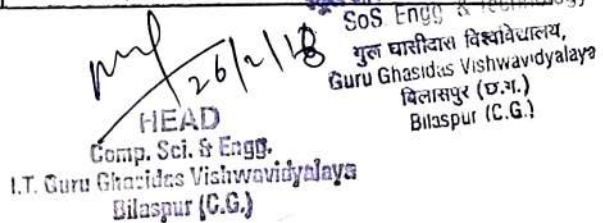 SoS Engg & Technology
गुरू घासीदास विश्वविद्यालय,
Guru Ghasidas Vishwavidyalaya
बिलासपुर (छ.ग.)
Bilaspur (C.G.)
26/2/18
HEAD
Comp. Sci. & Engg.
I.T. Guru Ghasidas Vishwavidyalaya
Bilaspur (C.G.)